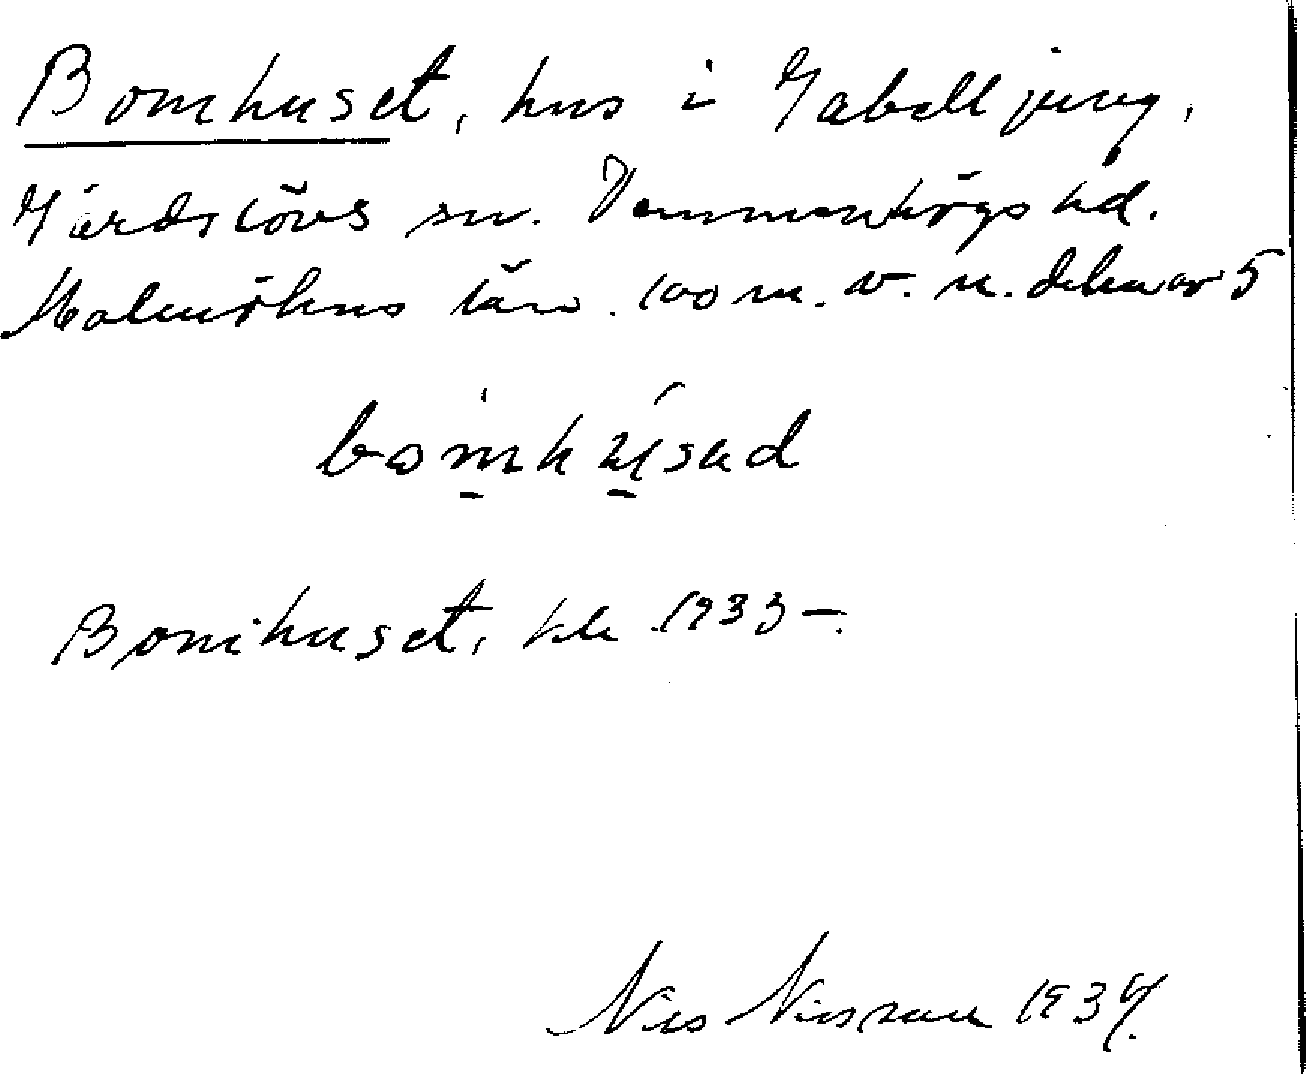 Bomhuset, hus i Gabelljung,
Gärdslövs sn. Vemmenhögs hd.
Malmöhus län. 100 m. v. n. dekar 5
bomhúsad
Bomhuset, 1933-.
Nils Nilsson 1934.